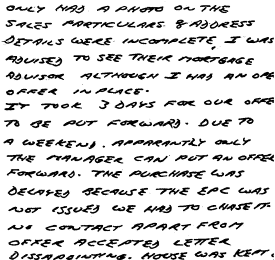 ONLY HAD A PHOTO ON THE
SALES PARTICULARS & ADDRESS
DETAILS WERE INCOMPLETE, I WAS
ADVISED TO SEE THEIR MORTGAGE
ADVISOR ALTHOUGH I HAD AN OPE
OFFER IN PLACE.
IT TOOK 3 DAYS FOR OUR OFFE
TO BE PUT FORWARD. DUE TO
A WEEKEND. APPARANTLY ONLY
THE MANAGER CAN PUT AN OFFER
FORWARD. THE PURCHASE WAS
DELAYED BECAUSE THE EPC WAS
NOT ISSUED WE HAD TO CHASE IT.
NO CONTACT APART FROM
OFFER ACCEPTED LETTER
DISSAPOINTING. HOUSE WAS KEPT.